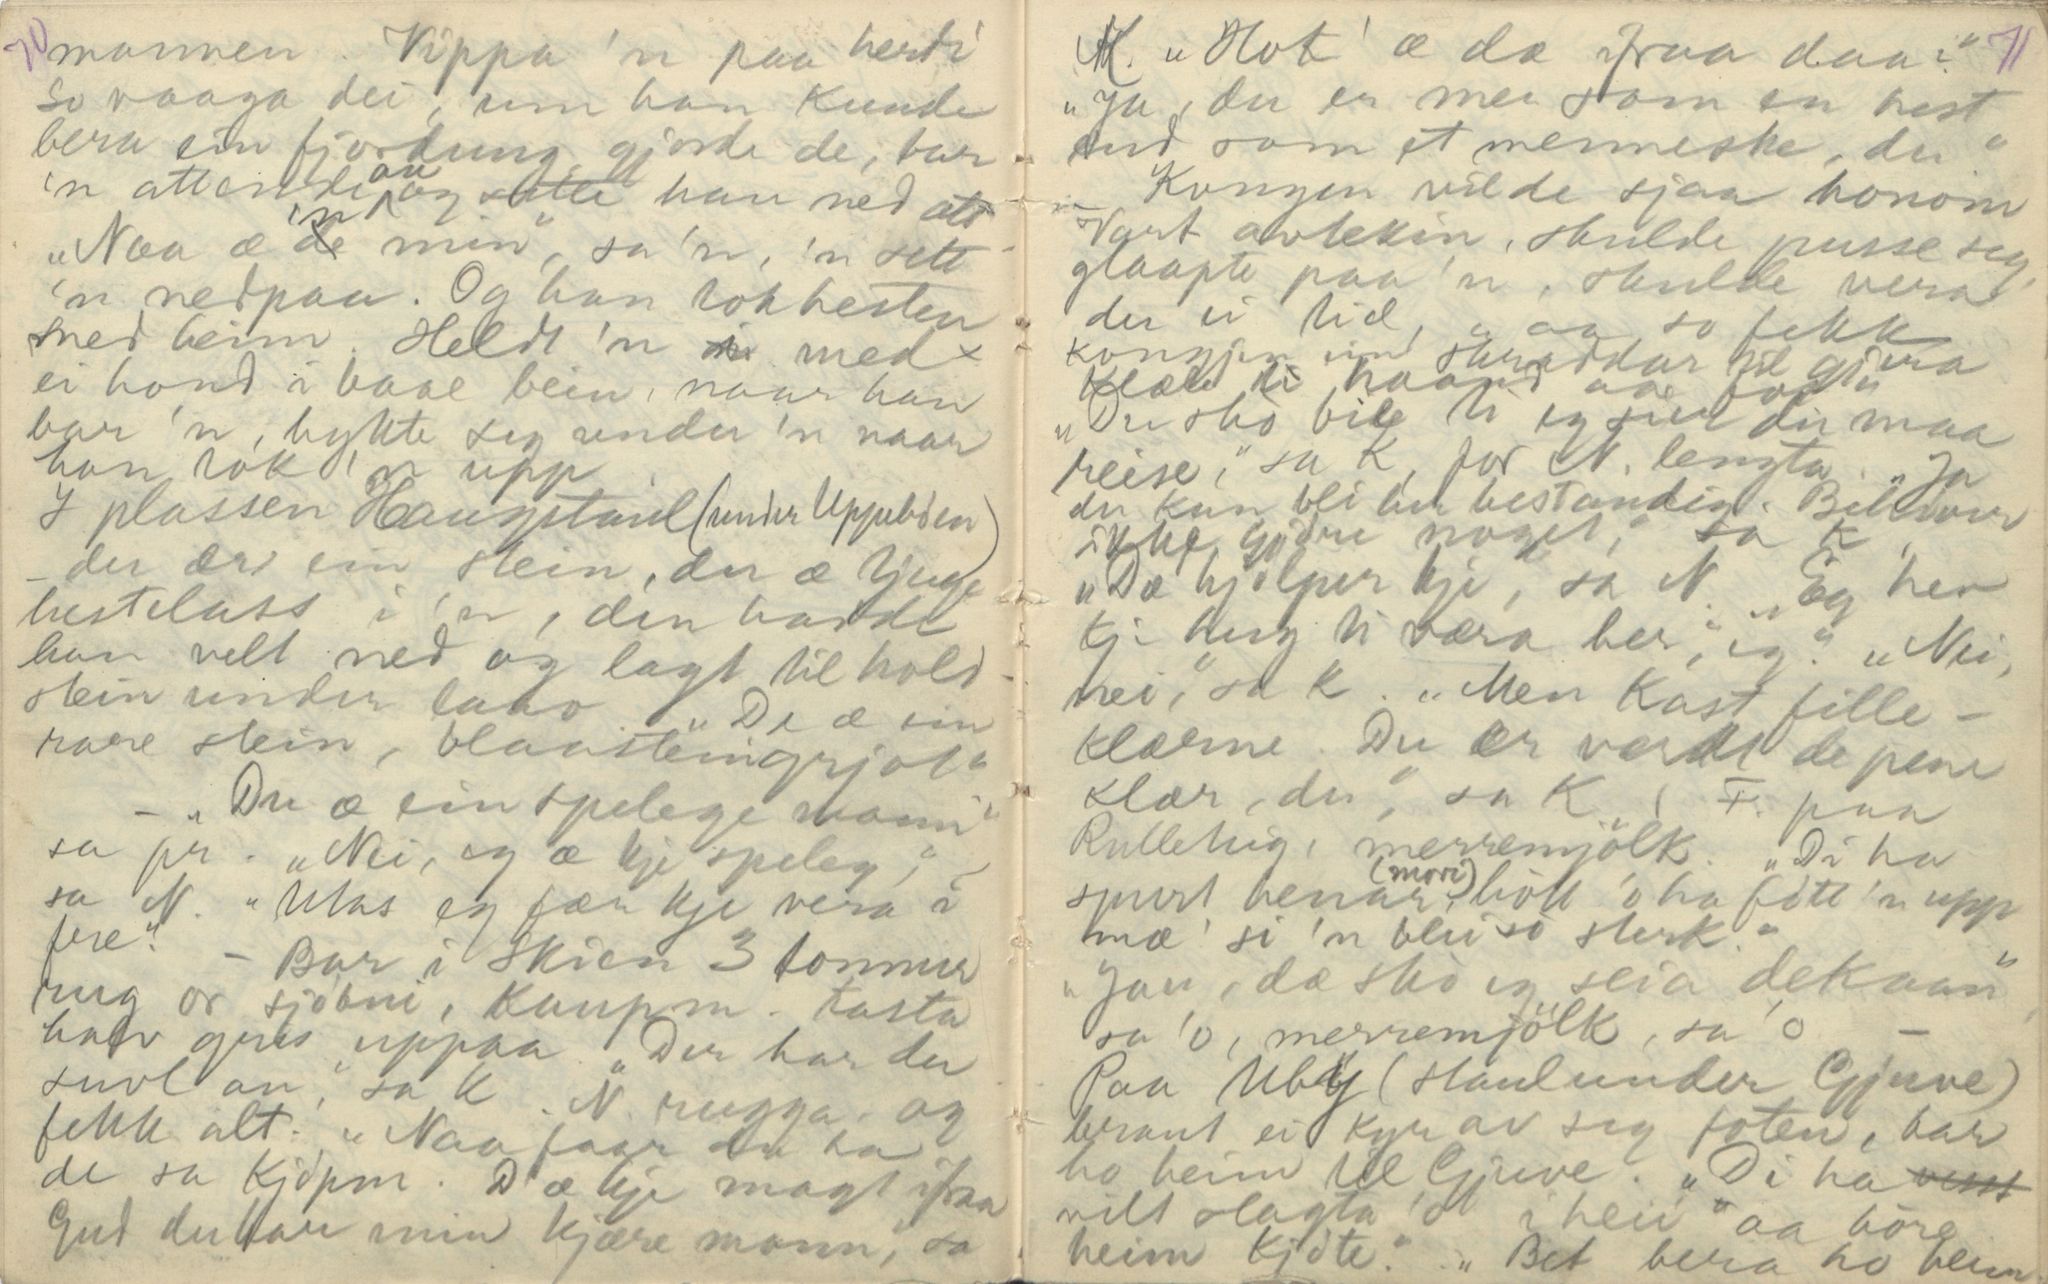 70
mannen. Vippa 'n paa herdi
so vaaga dei, um han kunde
bera ein fjordung, gjorde de, bar
'n attende au og sette han ned att
"Naa æ 'n min", sa 'n, 'n sett
'n nedpaa. Og han tok hesten
med heim. Heldt 'n med
ei hond i baae bein, naar han
bar 'n, bykte seg under 'n naar
han tok 'n upp
I plassen Haugstaul (under Uppebøen)
- der ær ein stein, der æ tjuge
hestelass i 'n, den hadde
han velt ned og lagt til hold-
stein under laao. "De æ ein
rare stein, blaasteingrjot"
- "Du æ ein spelege mann"
sa pr. "Nei, eg æ kje speleg,"
sa N. "Mas eg fær kje vera i
fre".
- Bar i Skien 3 tonnur
rug or sjöbui, kaupm. kasta
halv gris uppaa. "Der har du
suvl au," sa K. N. rugga og
fekk alt. "Naa faar du ha
de sa Kjöpm. D'æ kje magt ifraa
Gud du har min kjære mann," sa
71
M. "Hot' æ dæ fraa daa?"
"Ja, du er mer som en hest
end som et menneske, du"
- Kongen vilde sjaa honom
Vart avtekin, skulde pusse seg,
glaapte paa 'n, skulde vera
der ei tid, aa so fekk
kongjen ein skræddar til gjera
klæde ti haand aa fot"
"Du sko bie ti eg sier du maa
reise," sa K, for N. lengta. "Ja
du kan bli her bestandig. Behöver
ikke gjöre noget," sa K.
"Dæ hjølper kje", sa N. "Eg hev
kje hug ti væra her, eg." "Nei,
nei," sa K. "Men kast fille-
klærne. Du er værdt de pene
klær, du", sa K. F. paa
Rullehig, merremjölk. "Di ha
spurt henar (mori) hött 'o ha fött 'n upp
mæ' si 'n blei so sterk."
"Jau, dæ sko eg seia dekaan"
sa 'o, merremjölk, sa 'o -
Paa Uby (staul under Gjuve)
braut ei kyr av seg foten, bar
ho heim til Gjuve. "Di ha visst
vilt slagta 'o i heii" aa böre
heim kjöte." "Bet bera ho heim